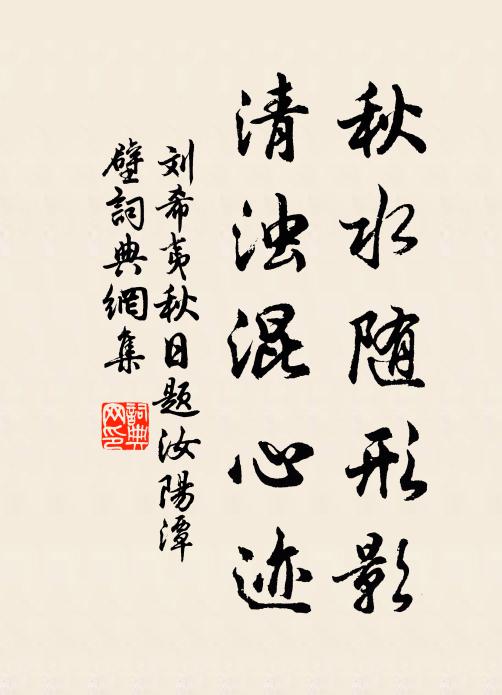 秋水随形影
清浊混心迹
刘希夷秋日题汝陽潭
壁詞典網集
詞典
网印